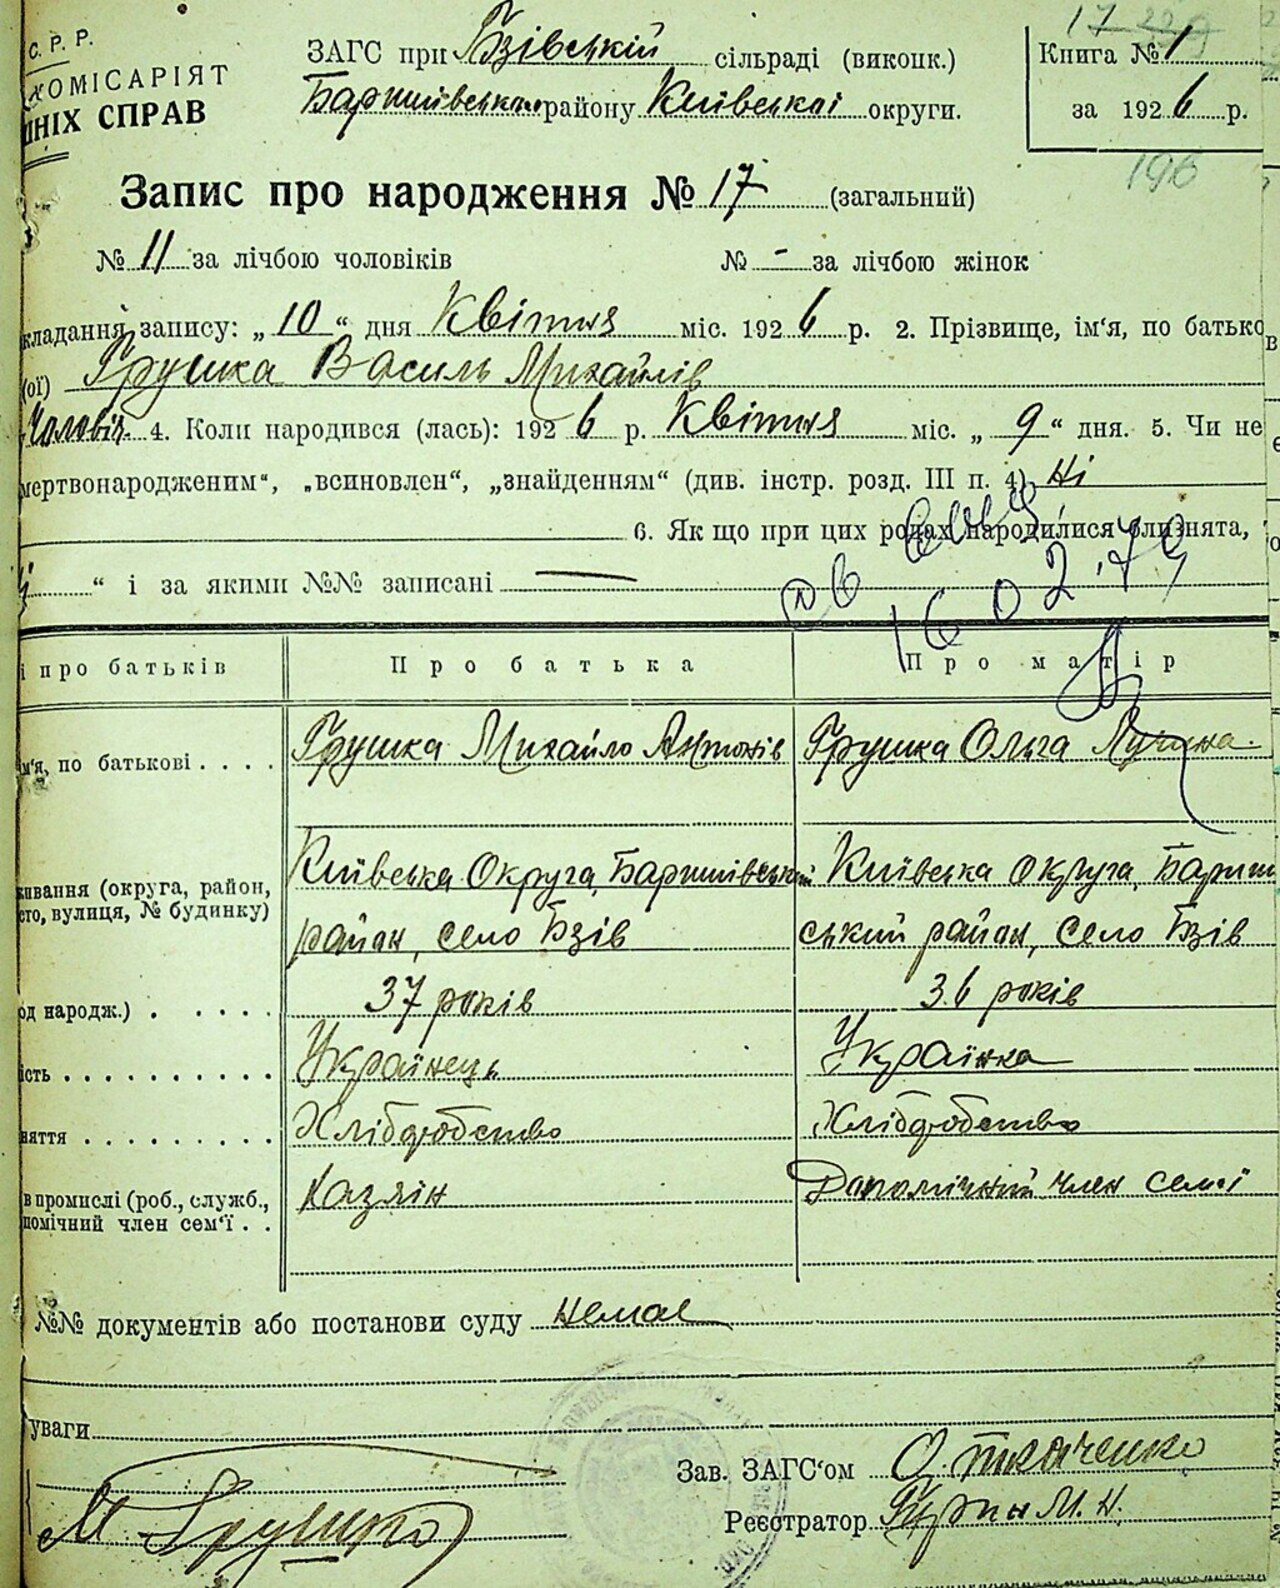 С. Р. Р.
КОМІСАРІЯТ
ШНІХ СПРАВ
ЗАГС при Бзівській сільраді (виконк.)
Баришівськ району Київської округи.
17
Книга № 1
за 1926 р.
196
Запис про народження № 17 (загальний)
№ 11 за лічбою чоловіків № - за лічбою жінок
кладання запису: „10“ дня Квітня міс. 1926 р. 2. Прізвище, ім'я, по батько
(ої) Грушка Василь Михайлів
Чоловіч. 4. Коли народився (лась): 1926 р. Квітня міс. „9“ дня. 5. Чи не
мертвонародженим“, „всиновлен“, „знайденням“ (див. інстр. розд. III п. 4) Ні
6. Як що при цих родах народилися близнята,
“ і за якими №№ записані —
16 02.79
і про батьків Про батька Про матір
м'я, по батькові . . . . Грушка Михайло Антонів Грушка Ольга
живання (округа, район, Київська Округа, Баришівський Київська Округа, Бариш
сто, вулиця, № будинку) район, село Бзів ський район, Село Бзів
од народж.) . . . . . 37 років 36 років
ість . . . . . . . . . . Українець Українка
няття . . . . . . . . . Хліборобство Хліборобство
в промислі (роб., служб., Хазяїн Допомічний член семї
помічний член сем'ї . .
№№ документів або постанови суду немає
уваги
Зав. ЗАГС'ом О. Ткаченко
М Грушка
Реєстратор М. Н.